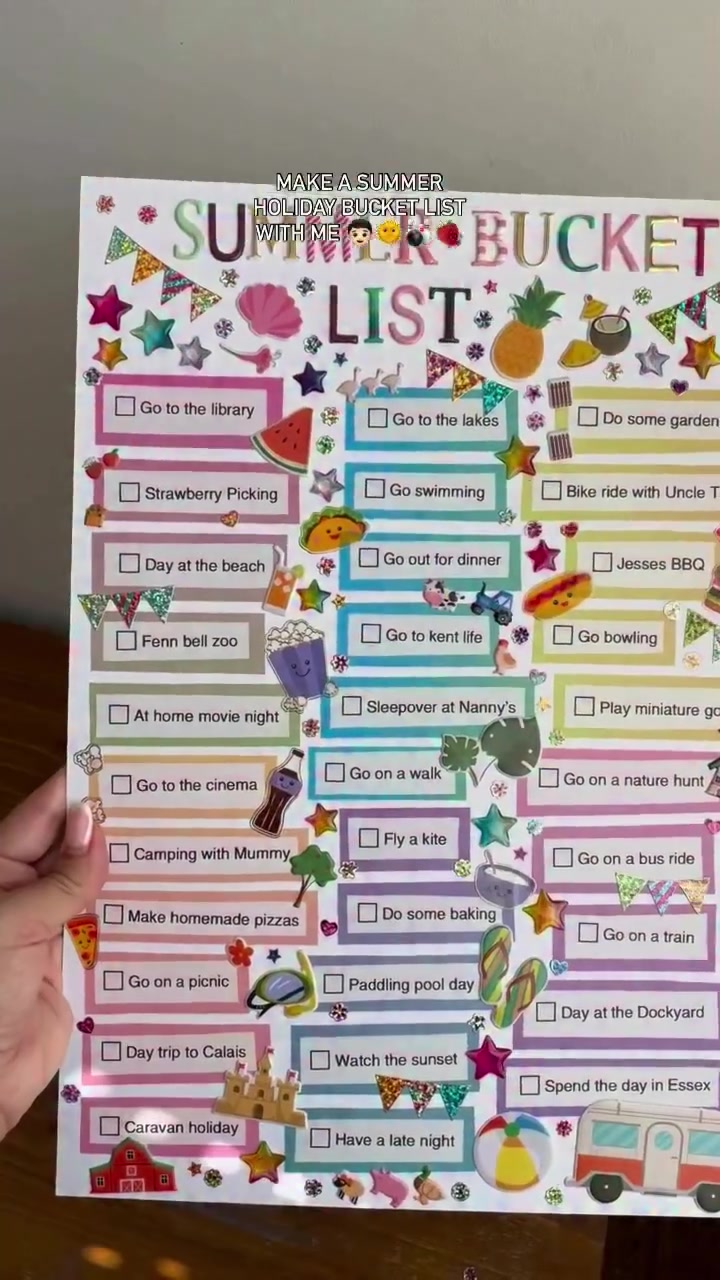 MAKE A SUMMER
HOLIDAY BUCKET LIST
WITH ME
SUMMER BUCKET
LIST
Go to the library
Strawberry Picking
Day at the beach
Fenn bell zoo
At home movie night
Go to the cinema
Camping with Mummy
Make homemade pizzas
Go on a picnic
Day trip to Calais
Caravan holiday
Go to the lakes
Go swimming
Go out for dinner
Go to kent life
Sleepover at Nanny's
Go on a walk
Fly a kite
Do some baking
Paddling pool day
Watch the sunset
Have a late night
Do some garden
Bike ride with Uncle T
Jesses BBQ
Go bowling
Play miniature go
Go on a nature hunt
Go on a bus ride
Go on a train
Day at the Dockyard
Spend the day in Essex